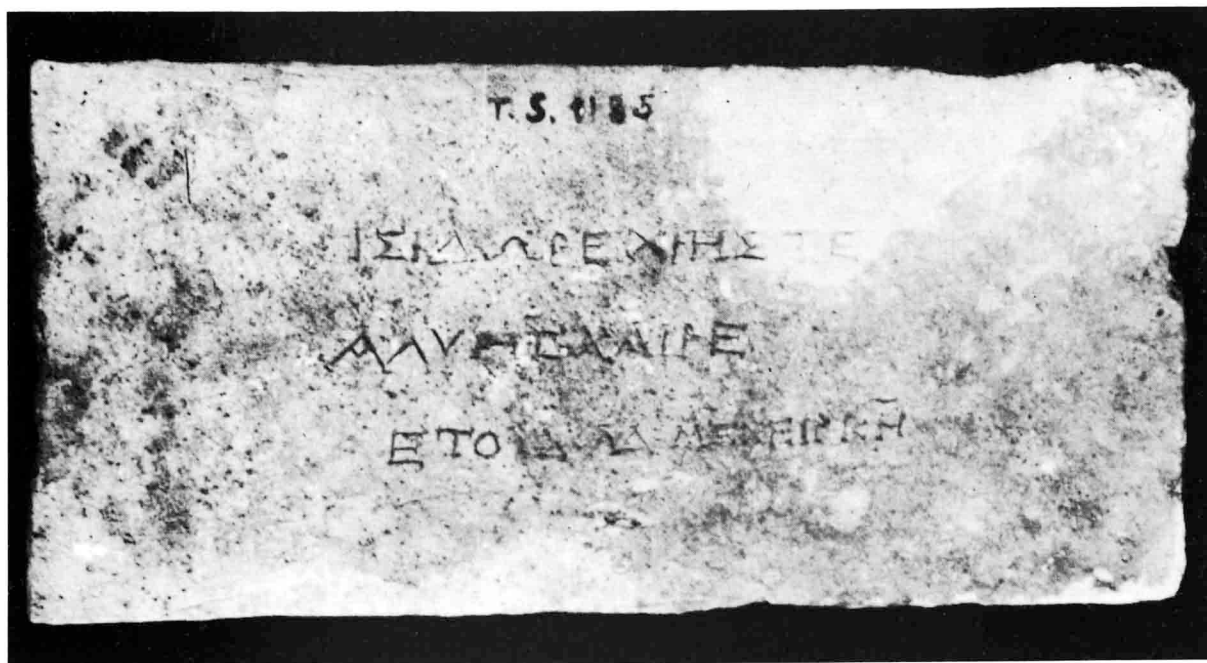 T.S. 1185
ΙΣΙΔΩΡΕ ΧΡΗΣΤΕ
ΑΛΥΠΕ ΧΑΙΡΕ
ΜΕΧΕΙΡ ΚΗ